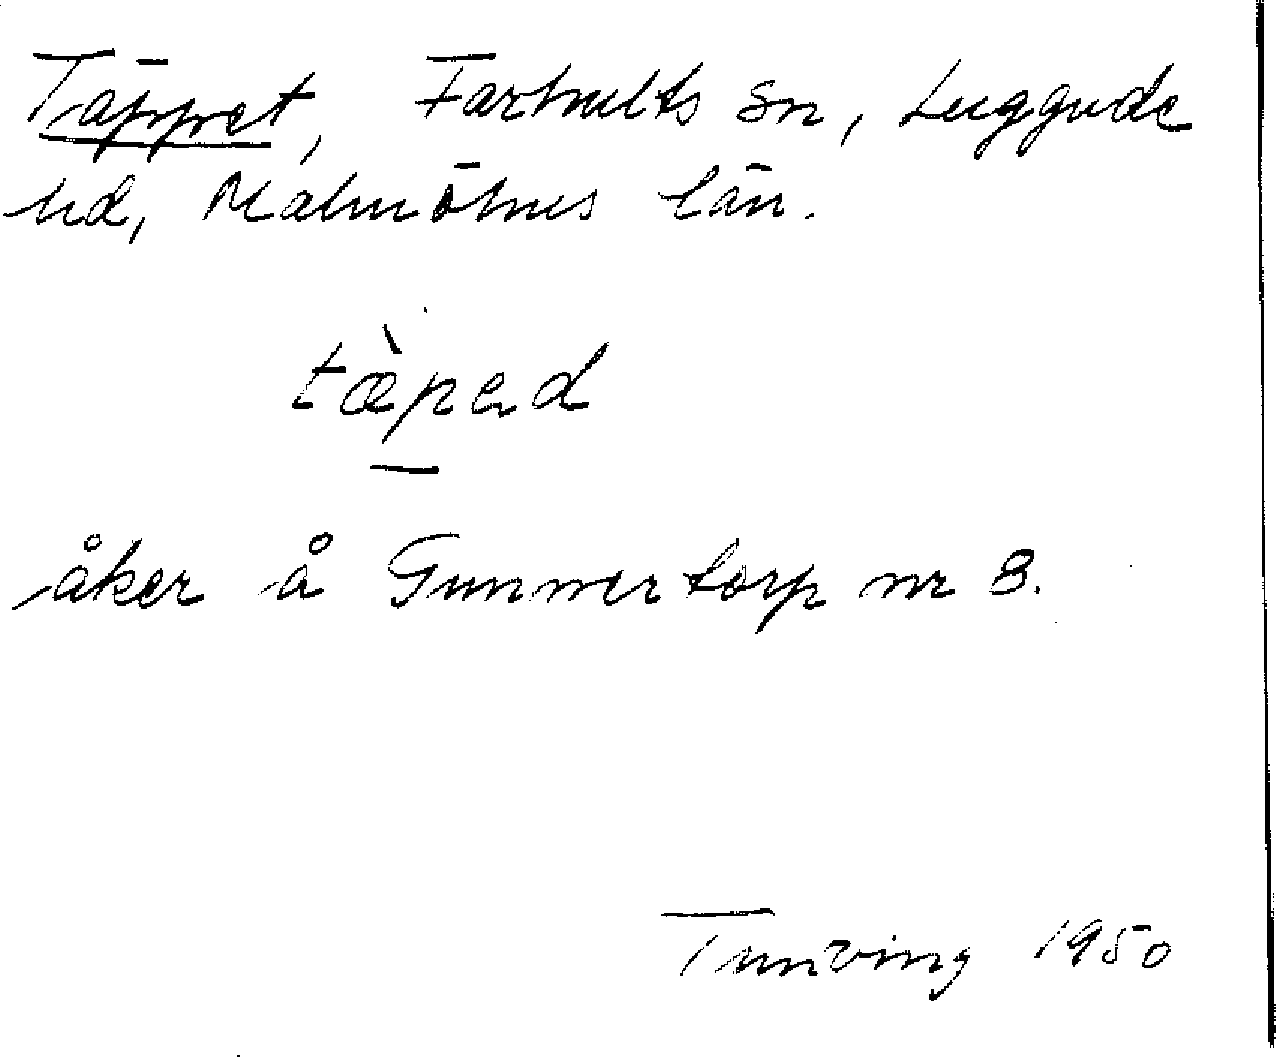 Täppet, Farhults sn, Luggude
hd, Malmöhus län.
tæ̀ped
åker å Gunnertorp nr 3.
Tunving 1950